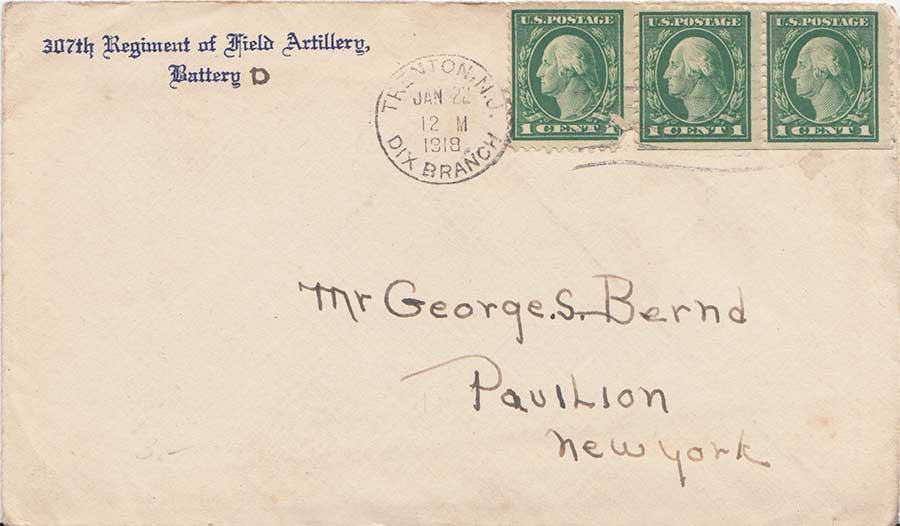 307th Regiment of Field Artillery,
Battery D
TRENTON, N.J.
JAN 22
12 M
1918
DIX BRANCH
U.S. POSTAGE
1 CENT 1
U.S. POSTAGE
1 CENT 1
U.S. POSTAGE
1 CENT 1
Mr George. S. Bernd
Pavilion
New York